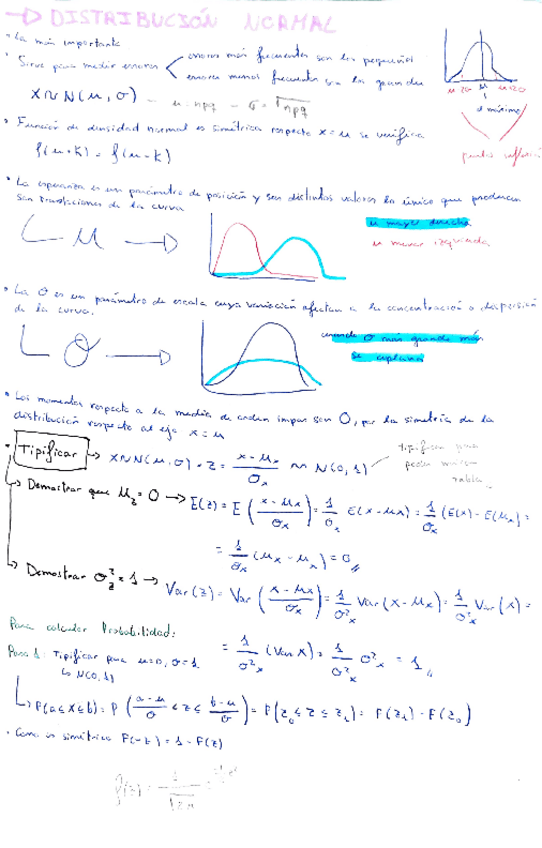 → DISTRIBUCIÓN NORMAL
• La más importante.
• Sirve para medir errores
errores más frecuentes son los pequeños
errores menos frecuentes son los grandes
X ~ N(μ, σ) - μ = npq - σ = √npq
μ-σ μ μ+σ
máximo
puntos inflexión
• Función de densidad normal es simétrica respecto x = μ se verifica
f(μ+k) = f(μ-k)
• La esperanza es un parámetro de posición y sus distintos valores lo único que producen
son translaciones de la curva
μ →
μ mayor derecha
μ menor izquierda
• La σ es un parámetro de escala cuya variación afectan a la concentración o dispersión
de la curva.
σ →
cuando σ más grande más
se aplana
• Los momentos respecto a la media de orden impar son 0, por la simetría de la
distribución respecto al eje x = μ
• Tipificar → X ~ N(μ, σ) • Z = (x - μx)/σx ~ N(0, 1)
tipificar para
poder mirar
tabla
→ Demostrar que μz = 0 → E(z) = E((x - μx)/σx) = 1/σx E(x - μx) = 1/σx (E(x) - E(μx) =
= 1/σx (μx - μx) = 0
→ Demostrar σ²z = 1 → Var(z) = Var((x - μx)/σx) = 1/σ²x Var(x - μx) = 1/σ²x Var(x) =
= 1/σ²x (Var x) = 1/σ²x σ²x = 1
Para calcular Probabilidad:
Paso 1: Tipificar para μ=0, σ=1.
↳ N(0, 1)
→ P(a ≤ x ≤ b) = P((a-μ)/σ ≤ z ≤ (b-μ)/σ) = P(z₀ ≤ z ≤ z₁) = F(z₁) - F(z₀)
• Como es simétrico F(-z) = 1 - F(z)